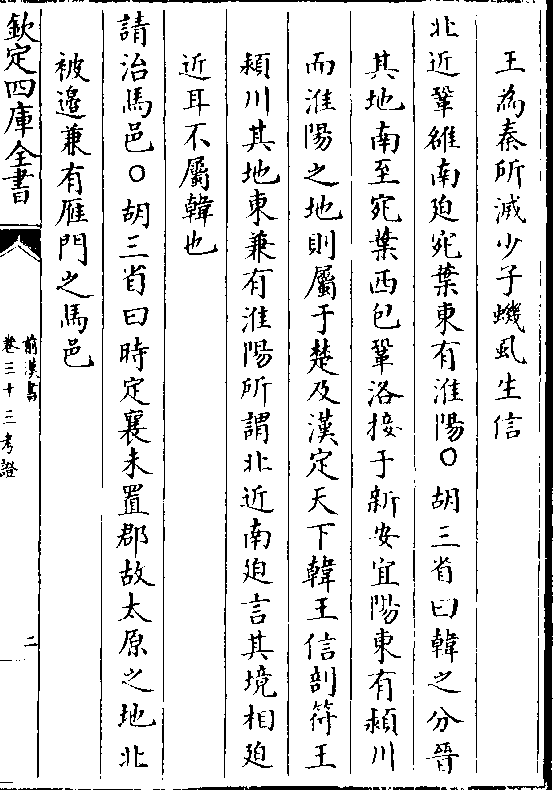 王為秦所滅少子蟣虱生信
北近鞏雒南迫宛葉東有淮陽○胡三省曰韓之分晉
其地南至宛葉西包鞏洛接于新安宜陽東有潁川
而淮陽之地則屬于楚及漢定天下韓王信剖符王
潁川其地東兼有淮陽所謂北近南迫言其境相迫
近耳不屬韓也
請治馬邑○胡三省曰時定襄未置郡故太原之地北
被邊兼有雁門之馬邑
欽定四庫全書
前漢書
卷三十三考證
二